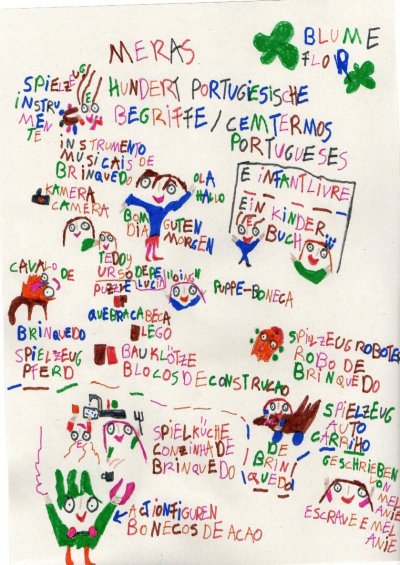 MERAS
BLUME
FLOR
SPIELZEUG
INSTRU
MEN
TE
HUNDERT PORTUGIESISCHE
BEGRIFFE / CEMTERMOS
PORTUGUESES
INSTRUMENTO
MUSICAIS DE
BRINQUEDO
OLA
HALLO
KAMERA
CAMERA
BOM
DIA
GUTEN
MORGEN
E INFANTLIVRE
EIN KINDER
BUCH
TEDDY
URSO DE PE
LUCIA
CAVALO DE
BRINQUEDO
SPIELZEUG
PFERD
PUZZLE
QUEBRACABECA
LEGO
BAUKLÖTZE
BLOCOS DE CONSTRUCAO
PUPPE-BONECA
SPIELZEUGROBOTER
ROBO DE
BRINQUEDO
SPIELKÜCHE
CONZINHA DE
BRINQUEDO
SPIELZEUG
AUTO
CARRIHO
DE
BRIN
QUEDO
GESCHRIEBEN
VON MEL
ANIE
ESCRAVE E MEL
ANIE
ACTIONFIGUREN
BONECOS DE ACAO